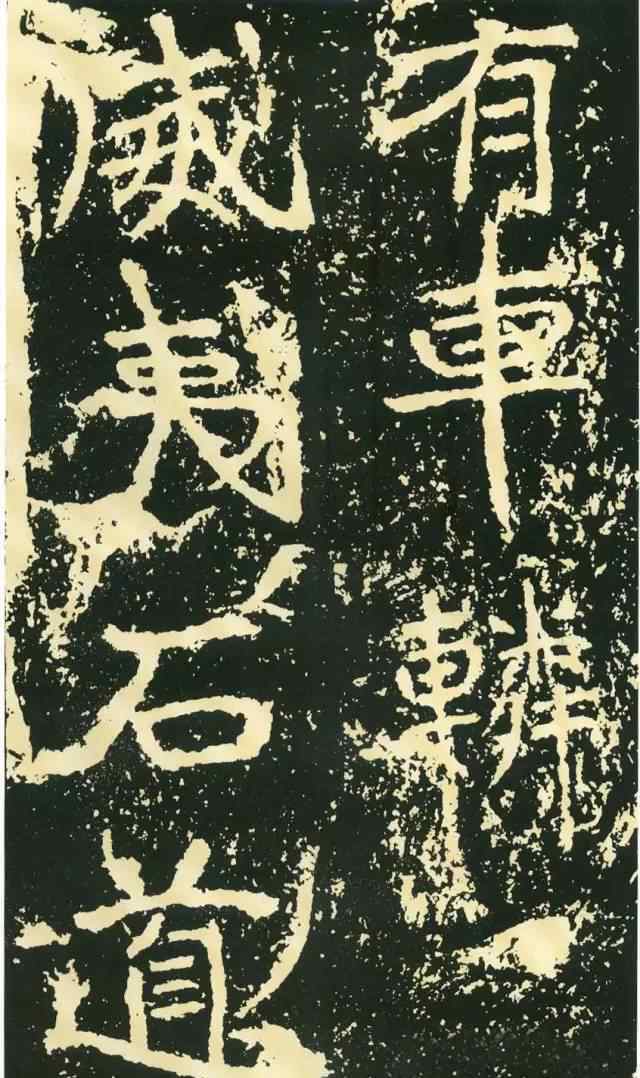 有車轔
威夷石道